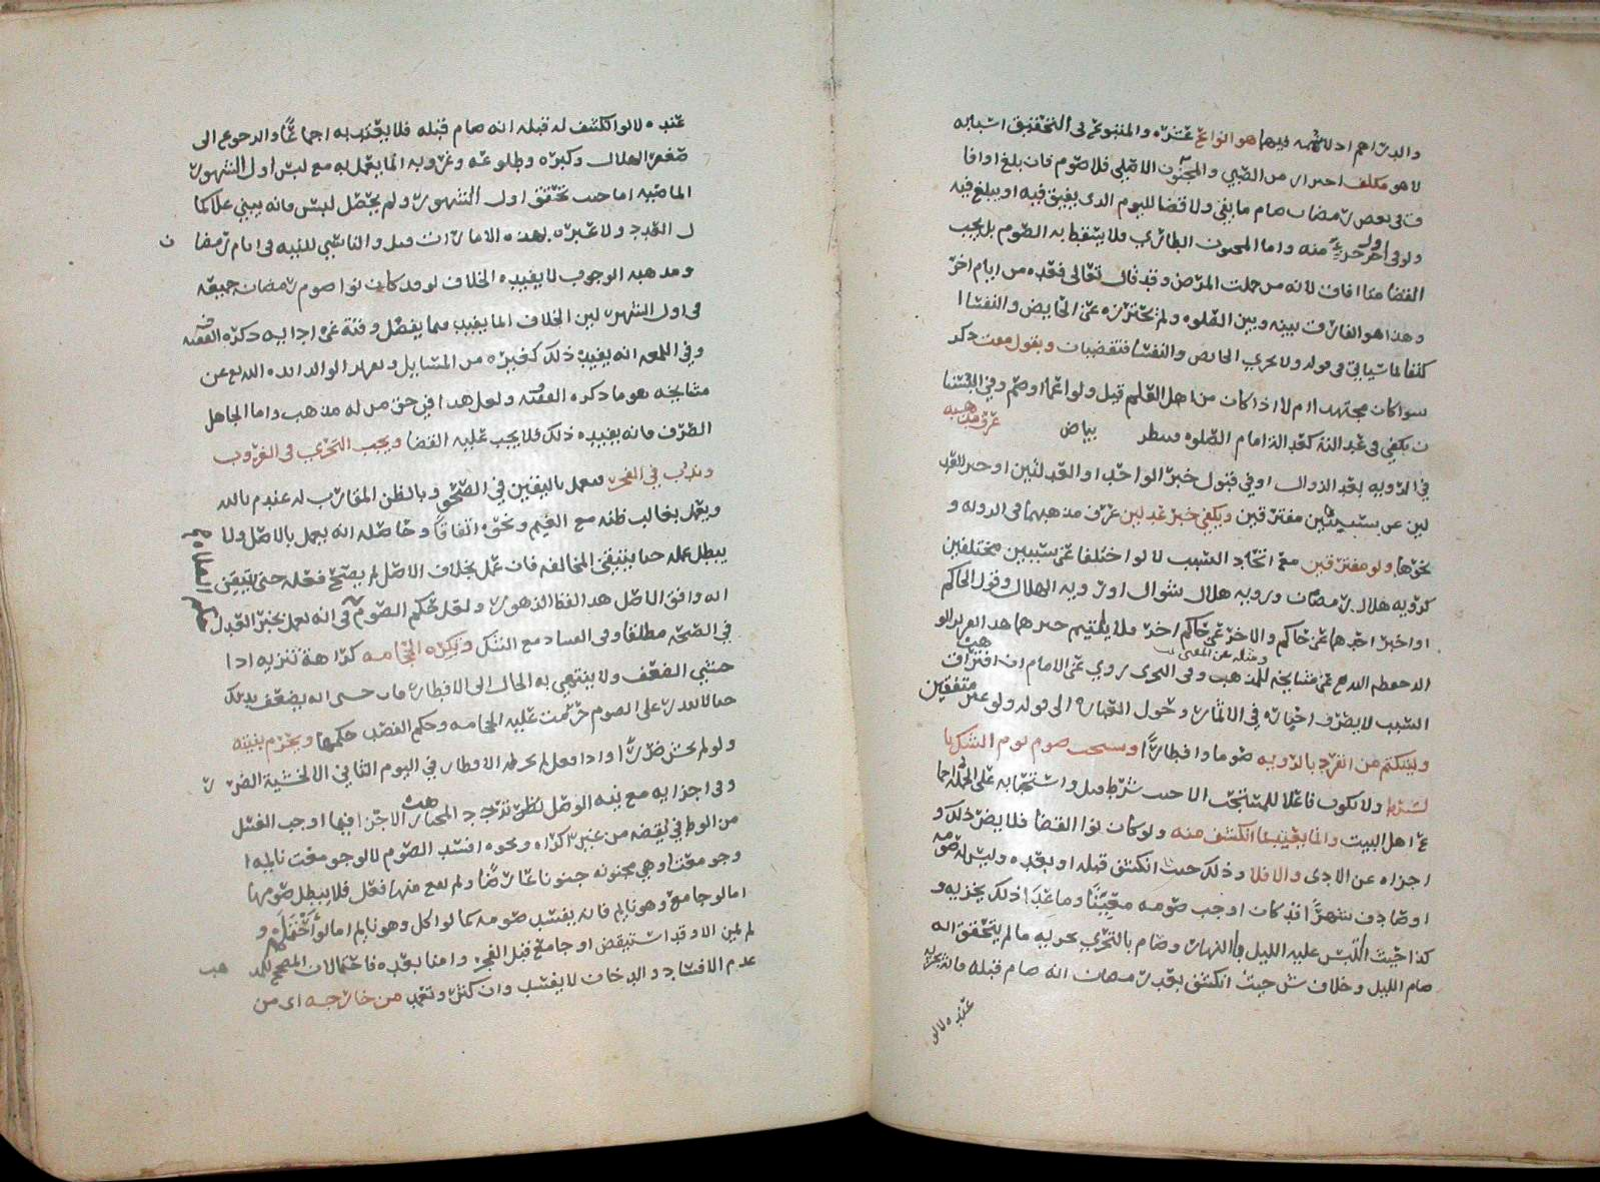 والدراهم اذ لا شبه فيها هو انواع غيره والمتنوع في التحقيق اسبابه
لا هو مكلف احترازا من الصبي والمجنون الاصلي فلا صوم فان بلغ او افا
ق في بعض رمضان صام ما بقي ولا قضا لليوم الذي يفيق فيه او يبلغ فيه
ولو في اخر جزء منه واما المجنون الطاري فلا يسقط به الصوم بل يجب
القضا متا افاق لانه من جملت المرض وقد قال تعالى فعده من ايام اخر
وهذا هو الفارق بينه وبين الصلوه ولم نحترزه عن الحايض والنفسا ا
كتفا لما سياتي في قوله ولا يجزي الحايض والنفسا فتقضيان وبقول مفت ذكر
سوا كان مجتهد ام لا اذا كان من اهل العلم قبل ولو اعما اوصم وفي
ن يكفي في عدالته كعدالة امام الصلوه وينظر بياض عرف مذهبه
في الرويه بعد الزوال او في قبول خبر الواحد او العدلتين او خبر العد
لين عن سببين مفترقين ويكفي خبر عدلين عرف مذهبهما في الرويه و
نحوها ولو مفترقين مع اتحاد السبب لا لو اختلفا عن سببين مختلفين
كرويه هلال رمضان ورويه هلال شوال او رويه الهلال وقول الحاكم
او اخبر احدهما عن حاكم والاخر عن حاكم اخر فلا يلتيم خبرهما هذا
ومثله عن المفتي
الد حفظه الله عن مشايخه للمذهب وفي البحر روي عن الامام ان افتراق
السبب لا يضر في اخباره في الاثمار وحول العباره الى قوله ولو عن متفقين
وليتكتم من انفرد بالرويه صوما وافطارا ويستحب صوم يوم الشك با
لشرط ولا يكون فاعلا للمستحب الا حيث شرط قبل واستحبابه على الجمله اجما
ع اهل البيت وانما يعتد بما انكشف منه ولو كان نوا القضا فلا يضر ذلك و
اجزاه عن الادى والا فلا وذلك حيث انكشف قبله او بعده وليس له صومه
او صادف شهرا قد كان اوجب صومه معينا وما عدا ذلك يجزيه و
كذا حيث التبس عليه الليل بالنهار وصام بالتحري يجزيه ما لم يتحقق انه
صام الليل وخلاف ش حيث انكشف بعد رمضان انه صام قبله فانه يجزيه
عنده لا لو
عنده لا لو انكشف له قبله انه صام قبله فلا يعتد به اجماعا والرجوع الى
صغر الهلال وكبره وطلوعه وغروبه انما يعمل به مع لبس اول الشهور
الماضيه اما حيث تحقق اول الشهور ولم يحصل لبس فانه يبني على كما
ل العدد ولا عبره بهذه الامارات قبل والناسي للنيه في ايام رمضا ن
ومذهبه الوجوب لا يفيده الخلاف لو قد كان نوا صوم رمضان جميعه
في اول الشهر لين الخلاف انما يفيد فيما يفعل وقته غير اجزا به ذكره الفقيه ض
وفي اللمعه انه يفيد ذلك كغيره من المسايل وقرر الوالد ايده الله عن
مشايخه هو ما ذكره الفقيه ولعل هذا في حق من له مذهب واما الجاهل
الصرف فانه يفيده ذلك فلا يجب عليه القضا ويجب التحري في الغروب
وندب في الفجر فيعمل باليقين في الصحو وبالظن المقارب له عند م بالله
ويعمل بغالب ظنه مع الغيم ونحوه اتفاقا وحاصله انه يعمل بالاصل ولا
يبطل عمله حتا يتيقن المخالفه فان عمل بخلاف الاصل لم يصح فعله حتى يتيقن
انه وافق الاصل هذا لفظ الزهور ولعل حكم الصوم في انه يعمل بخبر العدل
في الصحه مطلقا وفي الفساد مع الشك وتكره الحجامه كراهة تنزيه اذا
خشي الضعف ولا ينتهي به الحال الى الافطار فان خشي انه يضعف بذلك
حتا لا يقدر على الصوم حرمت عليه الحجامه وحكم الفصد حكمها ويحرم بنيته
ولو لم يخش ضررا او اذا فعل لم يجز له الافطار في اليوم الثاني الا لخشية الضر ر
وفي اجزايه مع نيه الوصل نظر وتردد المختار الاجزا فيها اوجب الغسل
من الوطي في يقضه من غير اكراه ونحوه افسد الصوم لا لو جومعت نايمه ا
وجومعت وهي مجنونه جنونا عارضا ولم يقع منها فعل فلا يبطل صومها
اما لو جامع وهو نايم فانه يفسد صومه كما لو اكل وهو نايم اما لو احتلم و
لم يمن الا وقد استيقض او جامع قبل الفجر وامنا بعده فاحتمالان المصحح
عدم الافساد والدخان لا يفسد وان كثر وتعمد من خارجه اى من